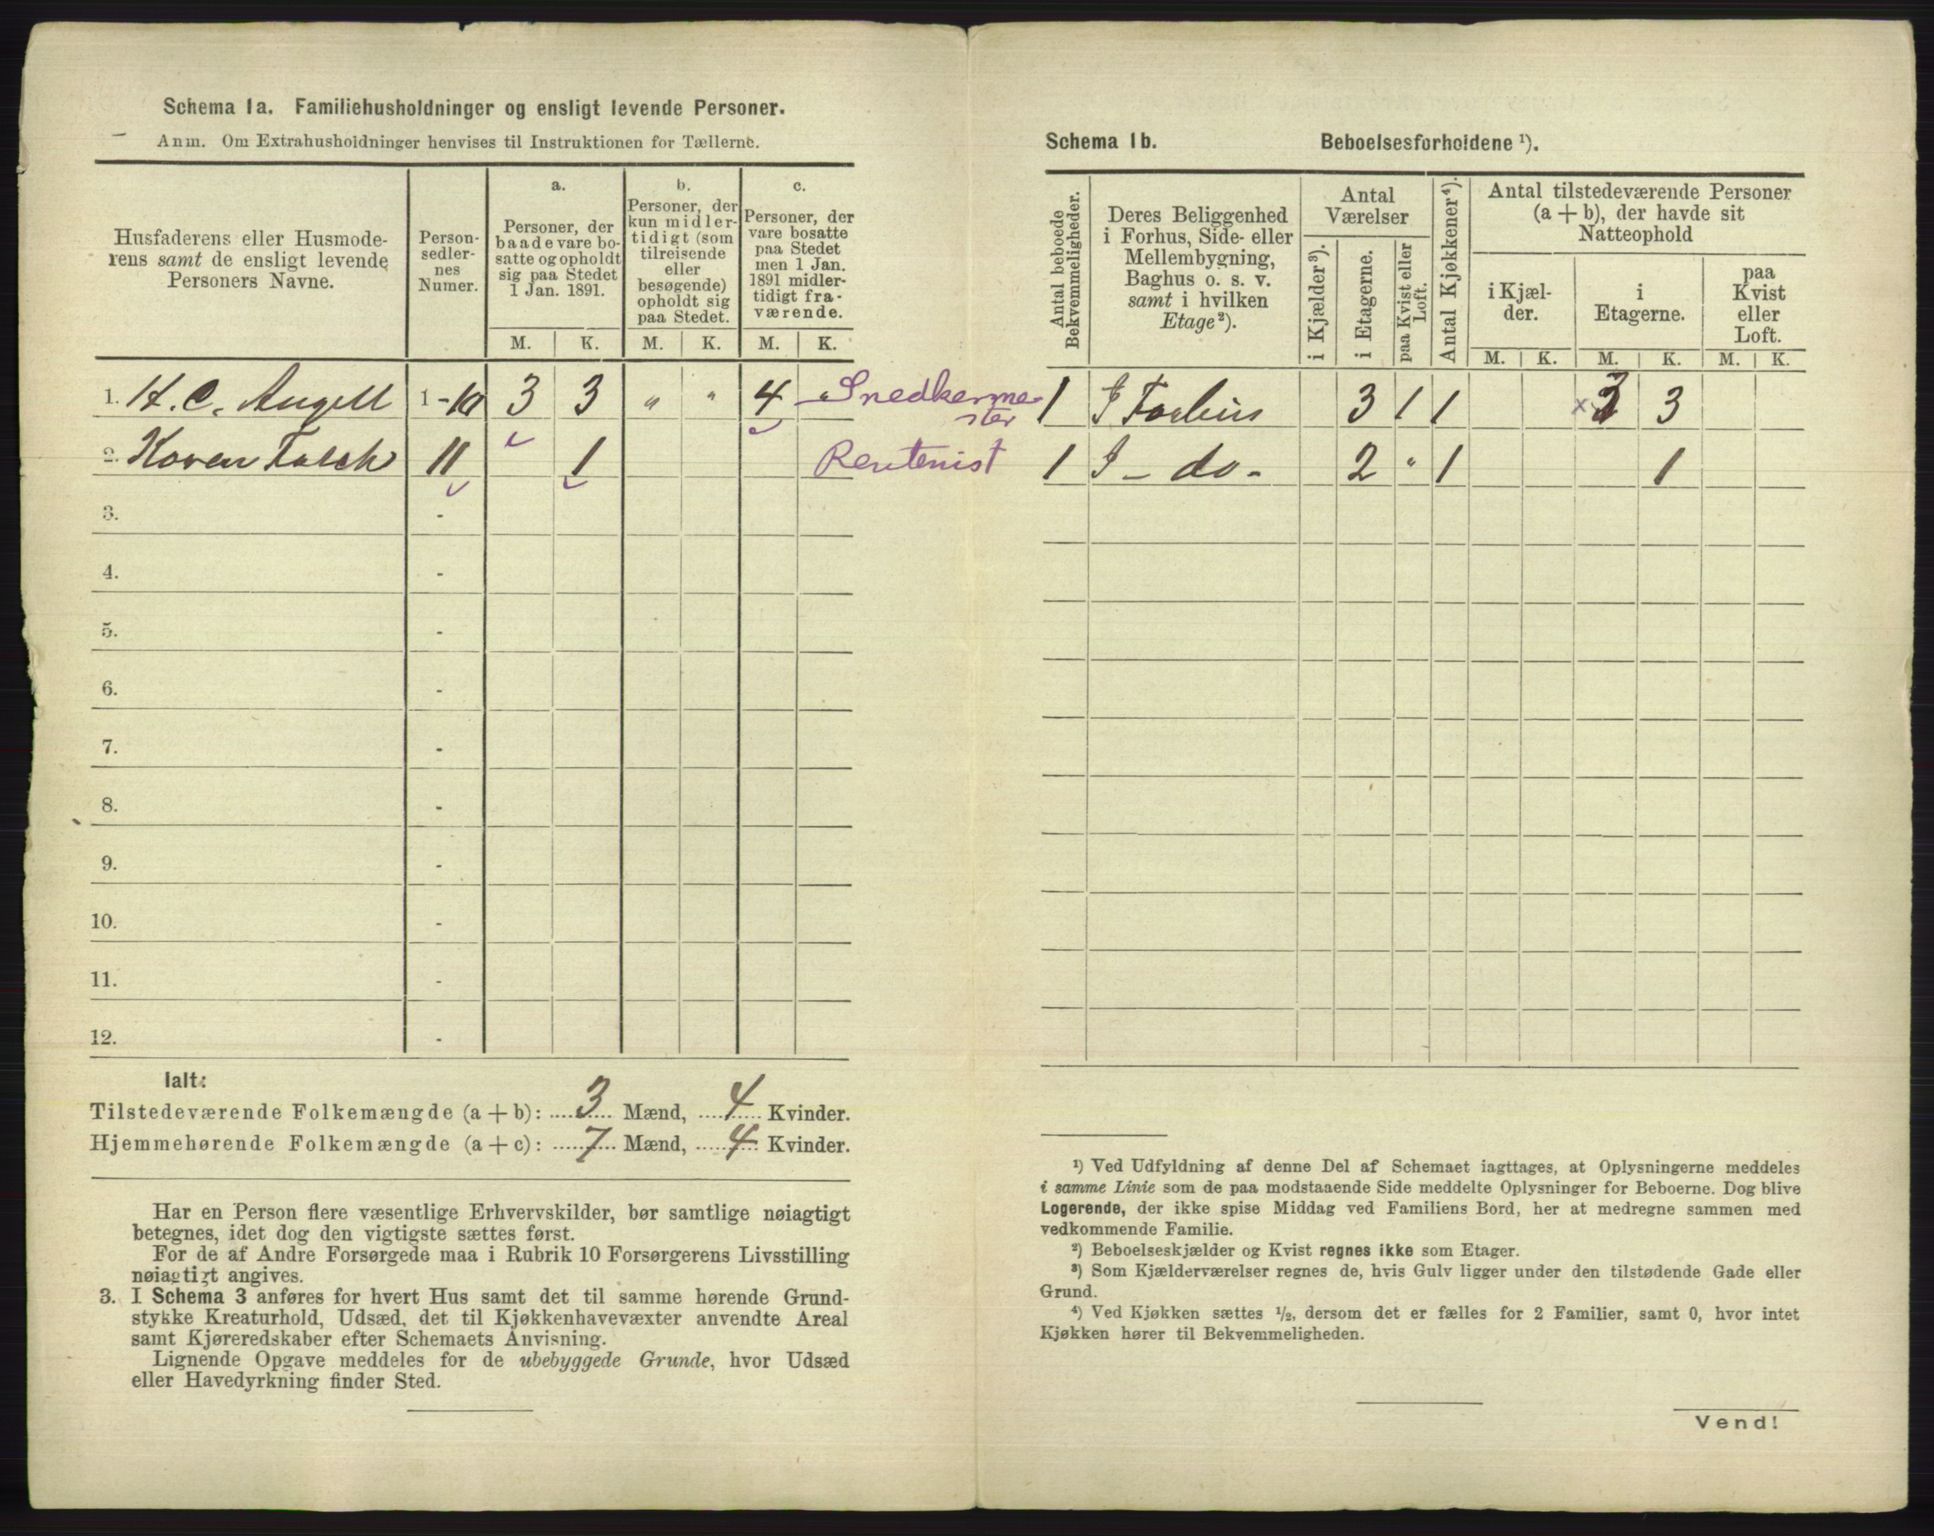 Schema 1a. Familiehusholdninger og ensligt levende Personer.
Anm. Om Extrahusholdninger henvises til Instruktionen for Tællerne.
Husfaderens eller Husmoderens samt de ensligt levende Personers Navne.
Personsedlernes Numer.
a.
Personer, der baade vare bosatte og opholdt sig paa Stedet 1 Jan. 1891.
b.
Personer, der kun midlertidigt (som tilreisende eller besøgende) opholdt sig paa Stedet.
c.
Personer, der vare bosatte paa Stedet men 1 Jan. 1891 midlertidigt fraværende.
M. K. M. K. M. K.
1. H. C. Angell 1-10 3 3 " " 4 " Snedkermester
2. Karen Falck 11 1 Rentenist
3. -
4. -
5. -
6. -
7. -
8. -
9. -
10. -
11. -
12. -
Ialt:
Tilstedeværende Folkemængde (a + b): 3 Mænd, 4 Kvinder.
Hjemmehørende Folkemængde (a + c): 7 Mænd, 4 Kvinder.
Har en Person flere væsentlige Erhvervskilder, bør samtlige nøiagtigt
betegnes, idet dog den vigtigste sættes først.
For de af Andre Forsørgede maa i Rubrik 10 Forsørgerens Livsstilling
nøiagtigt angives.
3. I Schema 3 anføres for hvert Hus samt det til samme hørende Grund-
stykke Kreaturhold, Udsæd, det til Kjøkkenhavevæxter anvendte Areal
samt Kjøreredskaber efter Schemaets Anvisning.
Lignende Opgave meddeles for de ubebyggede Grunde, hvor Udsæd
eller Havedyrkning finder Sted.
Schema 1b. Beboelsesforholdene ¹).
Antal beboede Bekvemmeligheder.
Deres Beliggenhed i Forhus, Side- eller Mellembygning, Baghus o. s. v. samt i hvilken Etage²).
Antal Værelser
i Kjælder³).
i Etagerne.
paa Kvist eller Loft.
Antal Kjøkkener⁴).
Antal tilstedeværende Personer (a + b), der havde sit Natteophold
i Kjælder.
i Etagerne.
paa Kvist eller Loft.
M. K. M. K. M. K.
1 I Forhus 3 1 1 x 3 3
1 I - do - 2 " 1 1
¹) Ved Udfyldning af denne Del af Schemaet iagttages, at Oplysningerne meddeles
i samme Linie som de paa modstaaende Side meddelte Oplysninger for Beboerne. Dog blive
Logerende, der ikke spise Middag ved Familiens Bord, her at medregne sammen med
vedkommende Familie.
²) Beboelseskjælder og Kvist regnes ikke som Etager.
³) Som Kjælderværelser regnes de, hvis Gulv ligger under den tilstødende Gade eller
Grund.
⁴) Ved Kjøkken sættes ½, dersom det er fælles for 2 Familier, samt 0, hvor intet
Kjøkken hører til Bekvemmeligheden.
Vend!